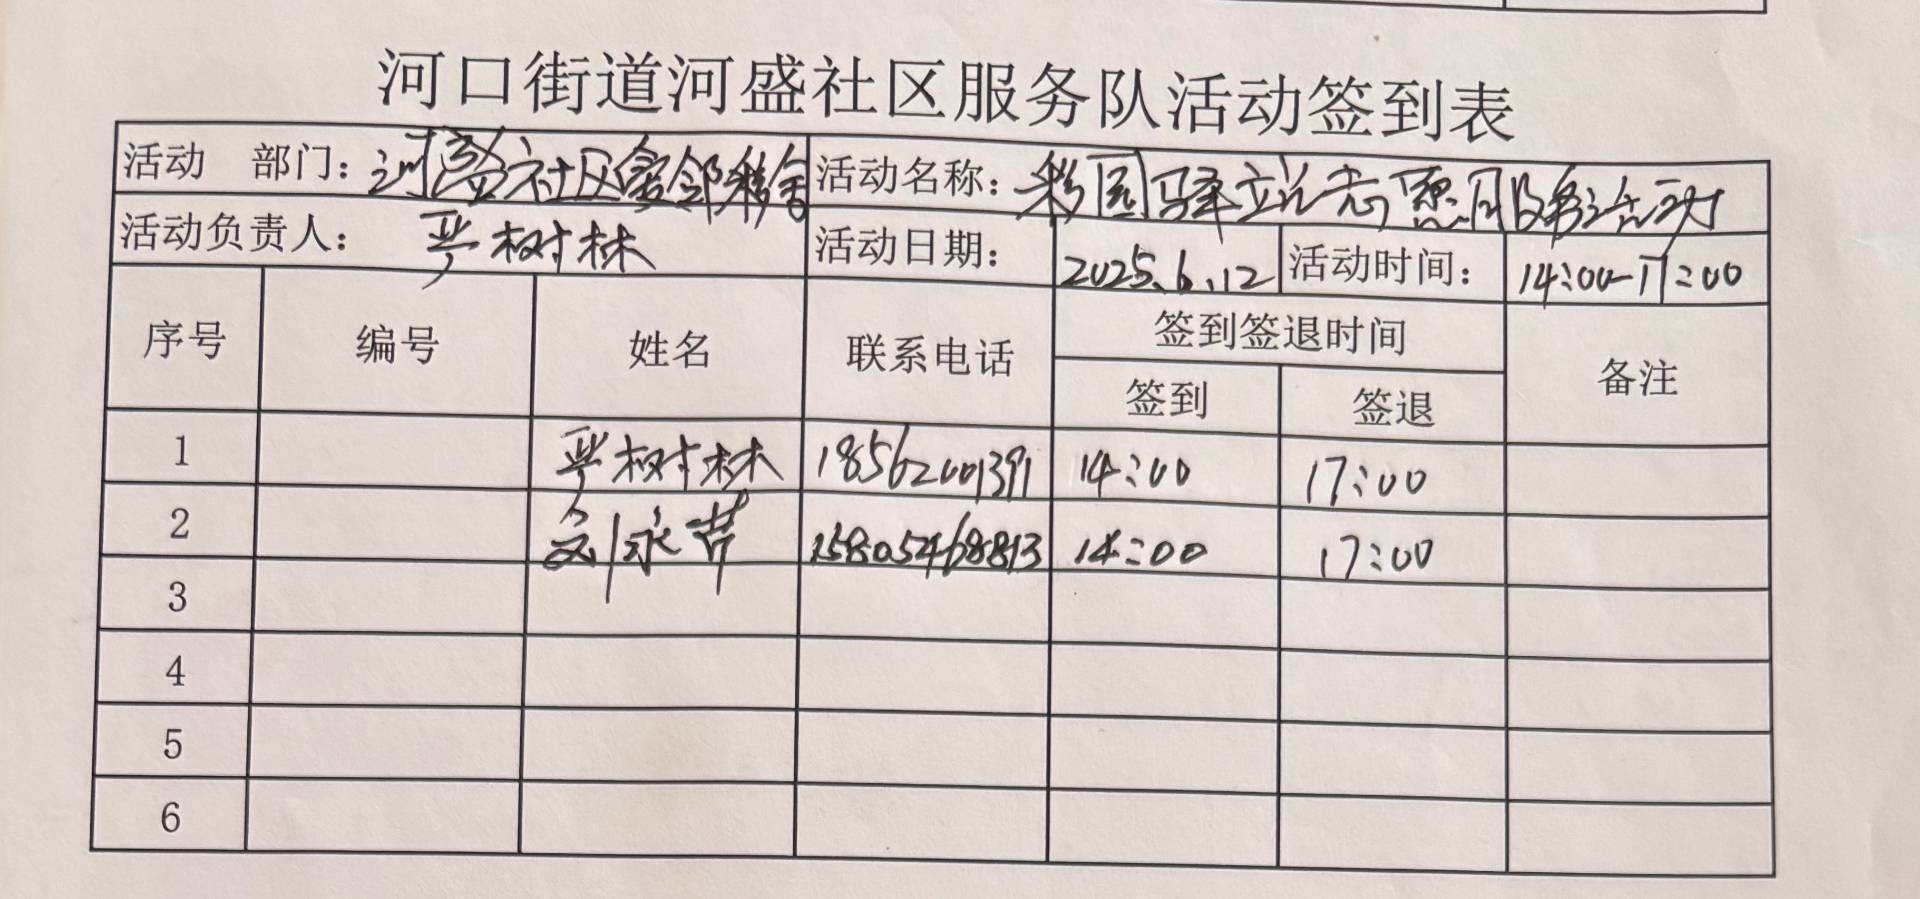 河口街道河盛社区服务队活动签到表
活动 部门：河盛社区爱邻 活动名称：彩园驿立论志愿服务活动
活动负责人：严树林 活动日期：2025.6.12 活动时间：14:00-17:00
序号 编号 姓名 联系电话 签到签退时间 备注
签到 签退
1 严树林 18562001391 14:00 17:00
2 刘永芹 15805468813 14:00 17:00
3
4
5
6